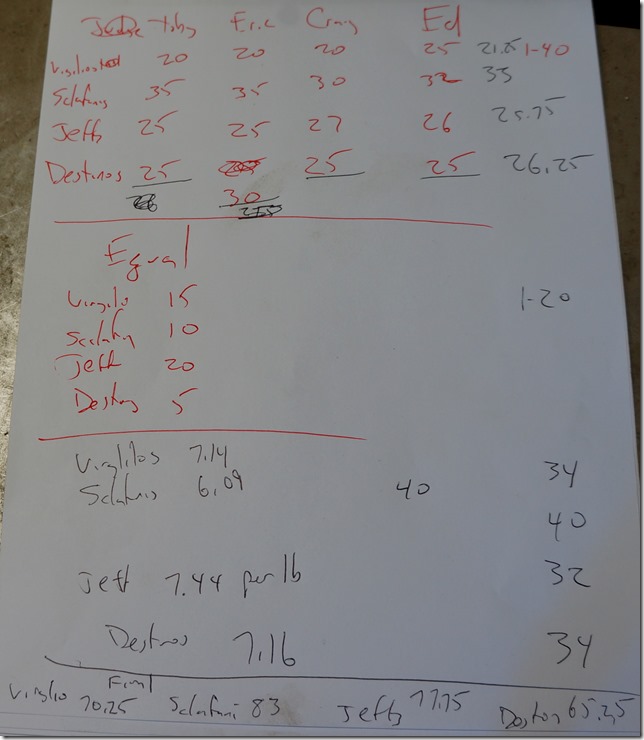 Toby Eric Craig Ed
Virgilios 20 20 20 25 21.25 1-40
Sclafanis 35 35 30 32 33
Jeffs 25 25 27 26 25.75
Destinos 25 25 25 26.25
30
Equal
Virgilo 15 1-20
Sclafni 10
Jeff 20
Destins 5
Virglilos 7.14 34
Sclafanis 6.09 40
40
Jeff 7.44 per lb 32
Destinos 7.16 34
Final
Virgilio 70.25 Sclafani 83 Jeffs 77.75 Destos 65.25